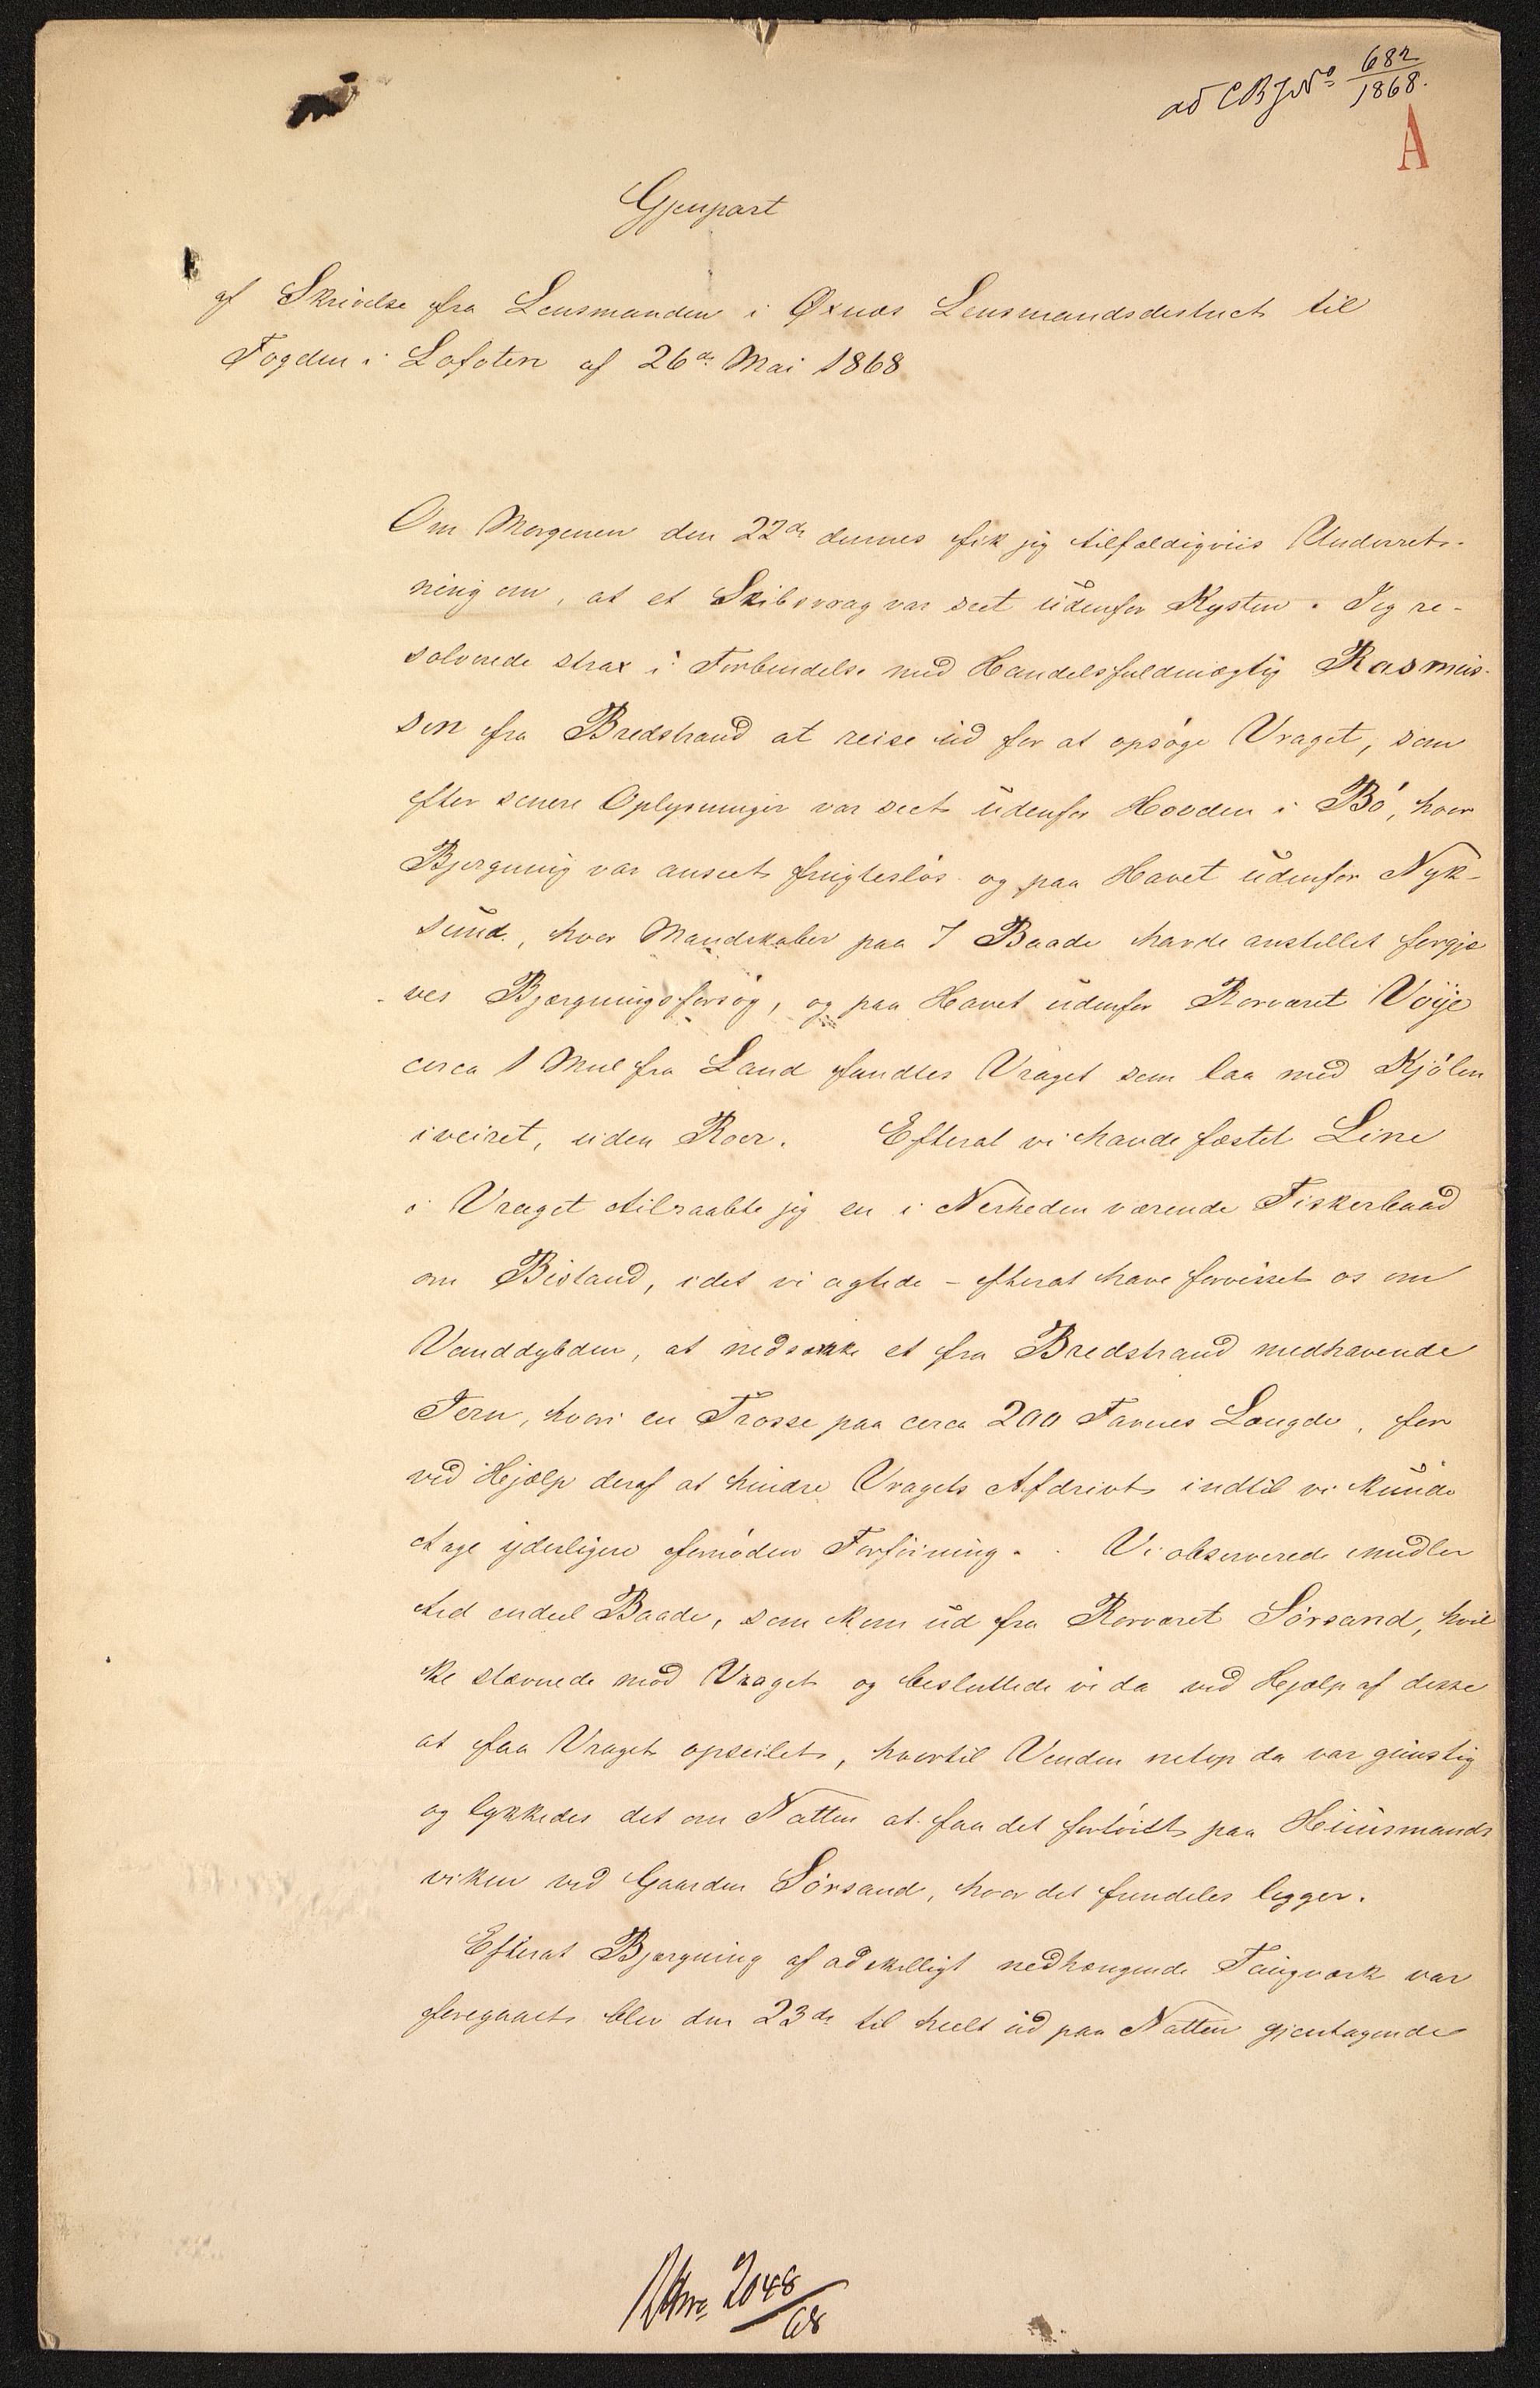 ad CBJNo 682/1868.
A
Gjenpart
af Skrivelse fra Lensmanden i Øxnæs Lensmandsdestrict til
Fogden i Lofoten af 26de Mai 1868
Om Morgenen den 22de dennes fik jeg tilfældigviis Underret-
ning om, at et Skibsvrag var seet udenfor Kysten. Jeg re-
solverede strax i Forbindelse med Handelsfuldmægtig Rasmus-
sen fra Bredstrand at reise ud for at opsøge Vraget, som
efter senere Oplysninger var seet udenfor Hovden i Bø, hvor
Bjergning var anseet frugtesløs og paa Havet udenfor Nyk-
sund, hvor Mandskaber paa 7 Baade havde anstillet forgjæ
-ves Bjærgningsforsøg, og paa Havet udenfor Rorværet Vöÿe
circa 1 Miil fra Land fandtes Vraget som laa med Kjølen
iveiret, uden Roer. Efterat vi havde fæstet Line
i Vraget tilraabte jeg en i Nerheden værende Fiskerbaad
om Bistand, idet vi agtede - efterat have forvisset os om
Vanddybden, at nedsænke et fra Bredstrand medhavende
Jern, hvori en Trosse paa circa 200 Favnes Længde, for
ved Hjælp deraf at hindre Vragets Afdrivt indtil vi kunde
tage yderligere fornøden Forføining. Vi observerede imidler
tid endeel Baade, som kom ud fra Rorværet Sørsand, hvil
ke stævnede mod Vraget og besluttede vi da ved Hjælp af disse
at faa Vraget opseilet, hvortil Venden netop da var gunstig
og lykkedes det om Natten at faa det fortöiet paa Huusmands
viken ved Gaarden Sørsand, hvor det fremdeles ligger.
Efterat Bjærgning af adskilligt nedhængende Taugværk var
foregaaet blev den 23de til heelt ud paa Natten gjentagende
No 2048/68